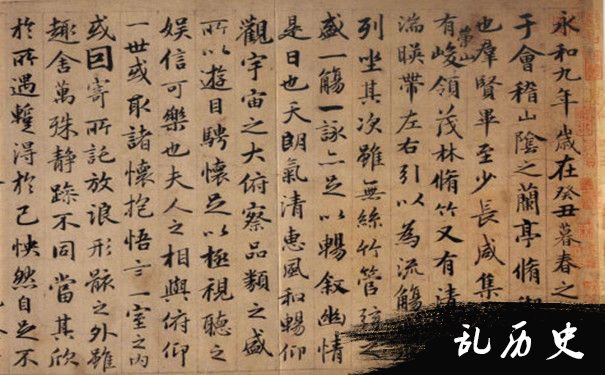 永和九年歲在癸丑暮春之
于會稽山陰之蘭亭脩
也羣賢畢至少長咸集
有崇山峻領茂林脩竹又有清
湍暎帶左右引以為流觴
列坐其次雖無絲竹管弦之
盛一觴一詠亦足以暢敘幽情
是日也天朗氣清惠風和暢仰
觀宇宙之大俯察品類之盛
所以遊目騁懷足以極視聽之
娛信可樂也夫人之相與俯仰
一世或取諸懷抱悟言一室之內
或因寄所託放浪形骸之外雖
趣舍萬殊靜躁不同當其欣
於所遇蹔得於己怏然自足不
乱历史